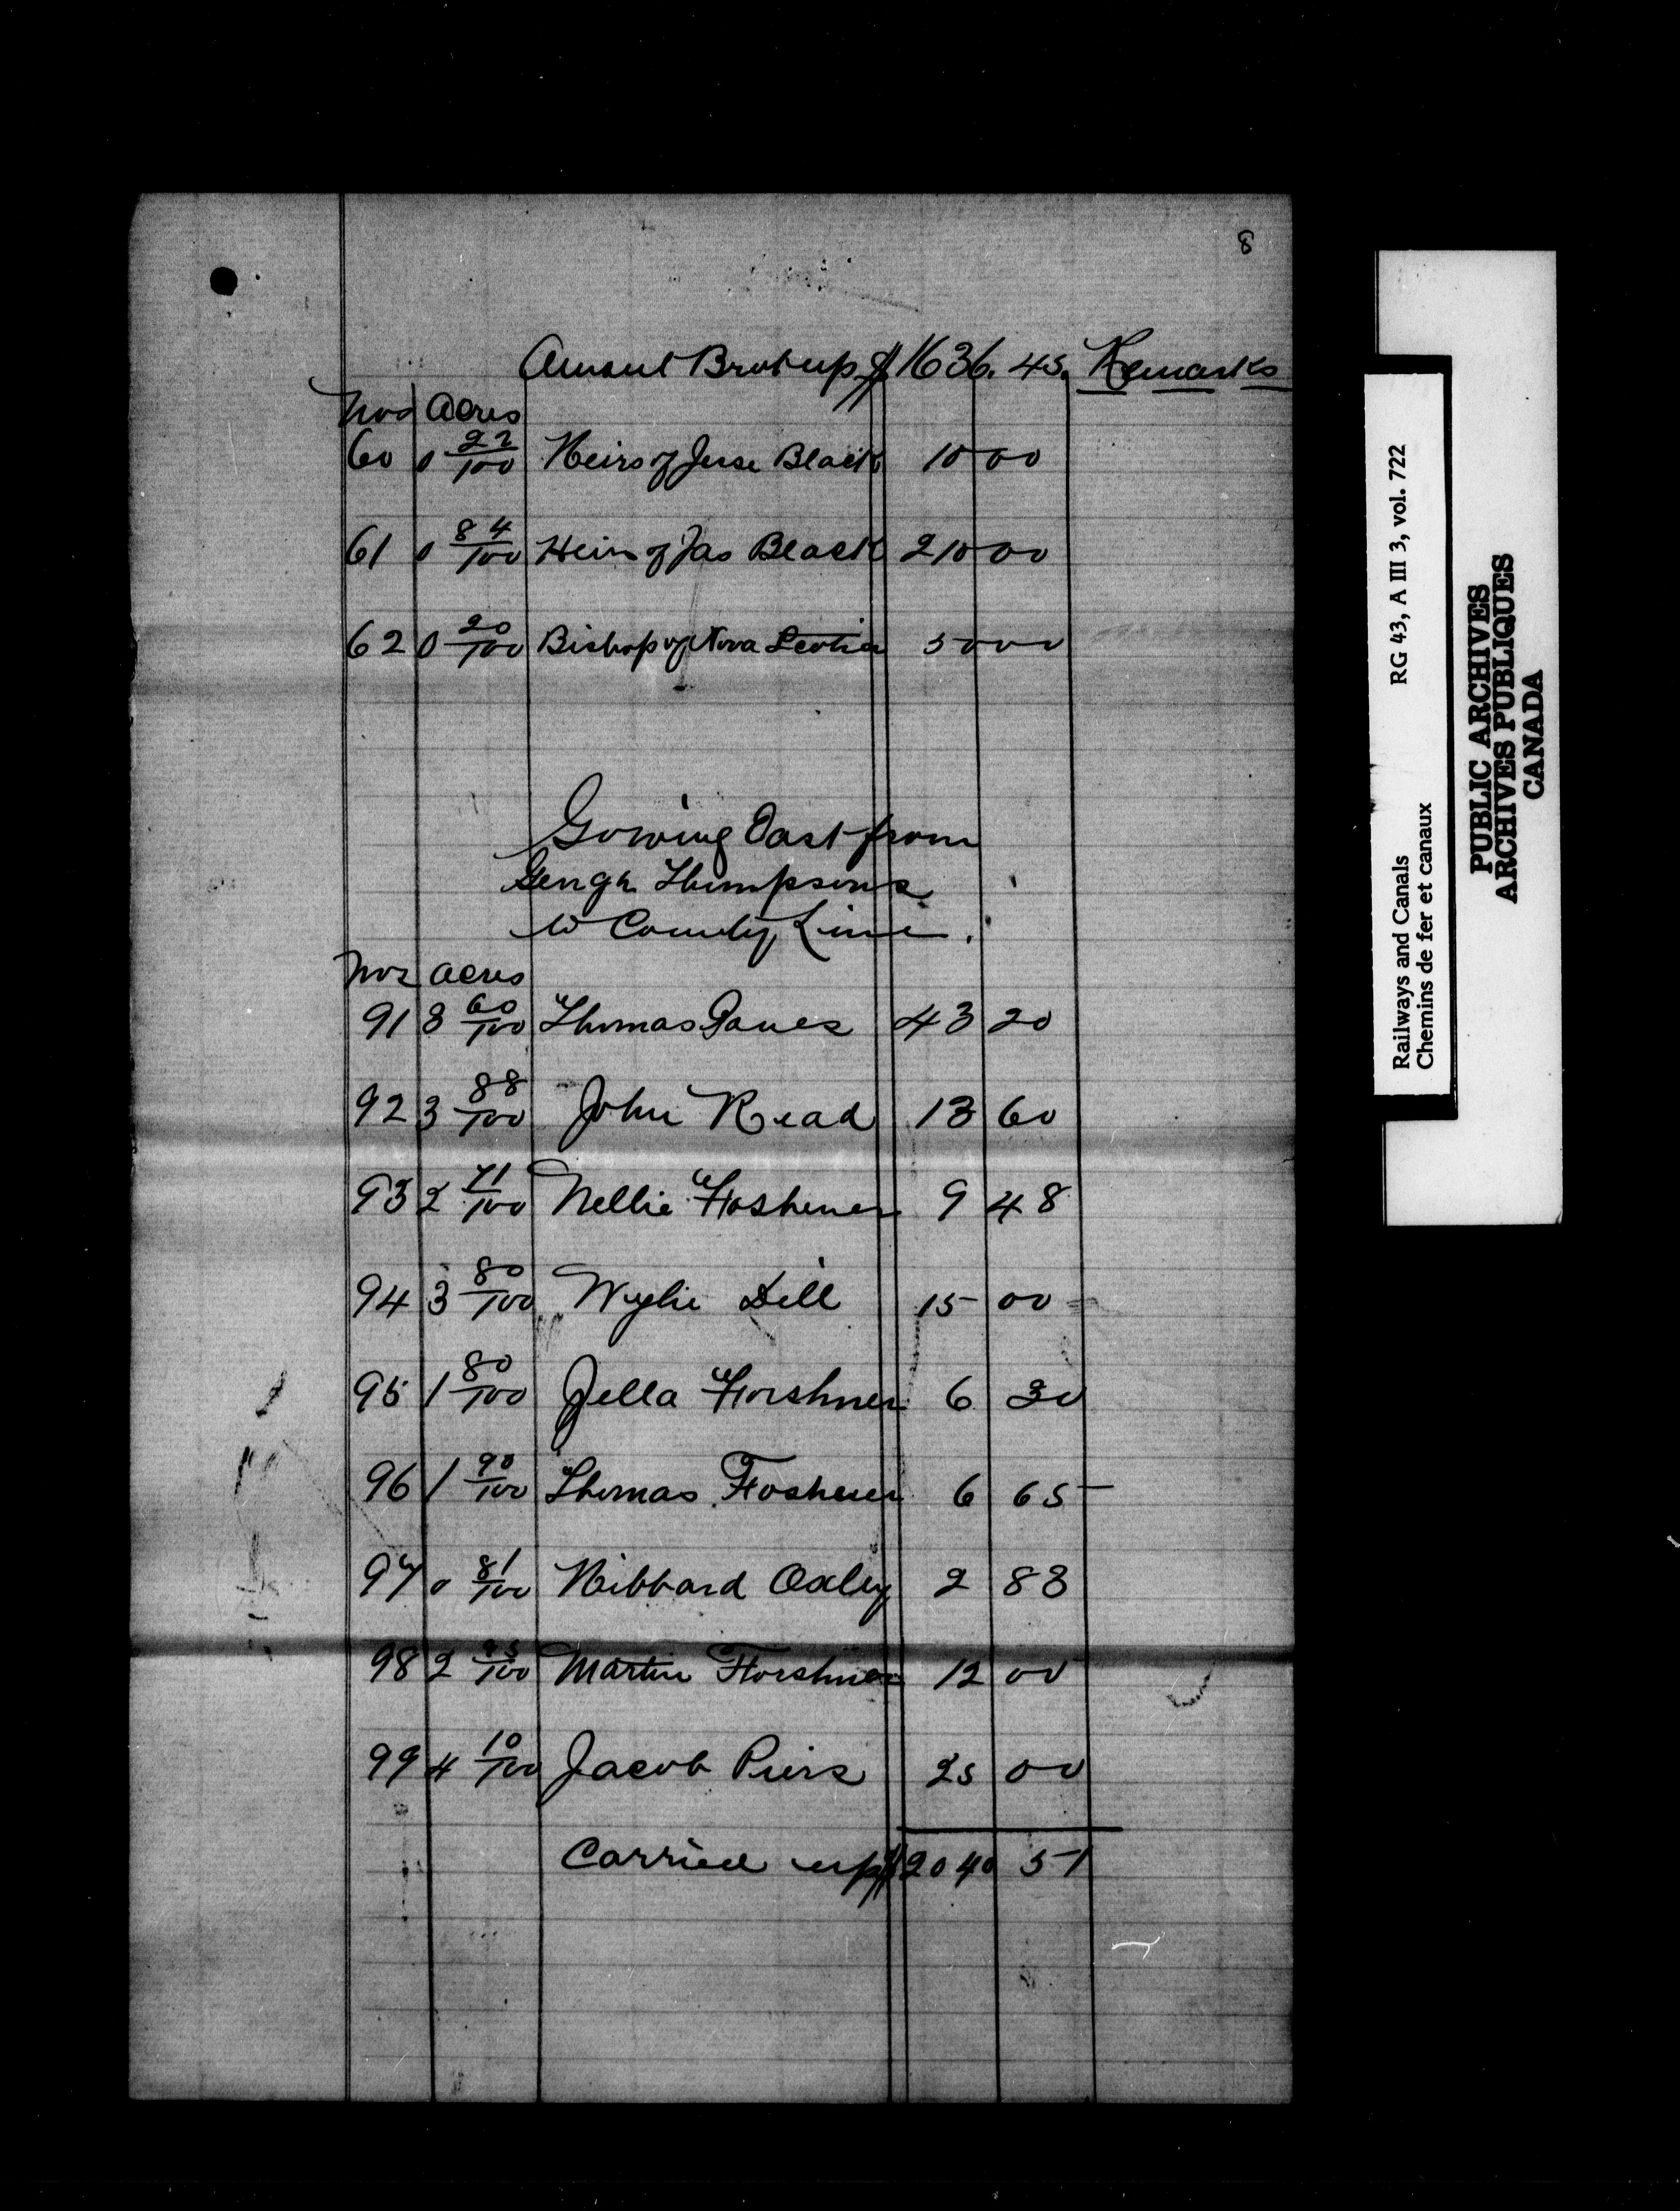 8
Amount Brot up $ 1636. 45. Remarks
Nos Acres
60 0 22/100 Heirs of Jesse Black 10 00
61 0 84/100 Heirs of Jas Black 210 00
62 0 20/100 Bishop of Nova Scotia 50 00
Gowing East from
George Thompsons
to County Line.
Nos acres
91 3 60/100 Thomas 43 20
92 3 88/100 John Read 13 60
93 2 71/100 Nellie Foshener 9 48
94 3 80/100 Wylie Dill 15 00
95 1 80/100 Jella Forshner 6 30
96 1 90/100 Thomas Foshener 6 65
97 0 81/100 Hibbard Oxley 2 83
98 2 95/100 Martin Forshner 12 00
99 4 10/100 Jacob Piers 25 00
Carried up $ 2040 51
Railways and Canals RG 43, A III 3, vol. 722
Chemins de fer et canaux
PUBLIC ARCHIVES
ARCHIVES PUBLIQUES
CANADA